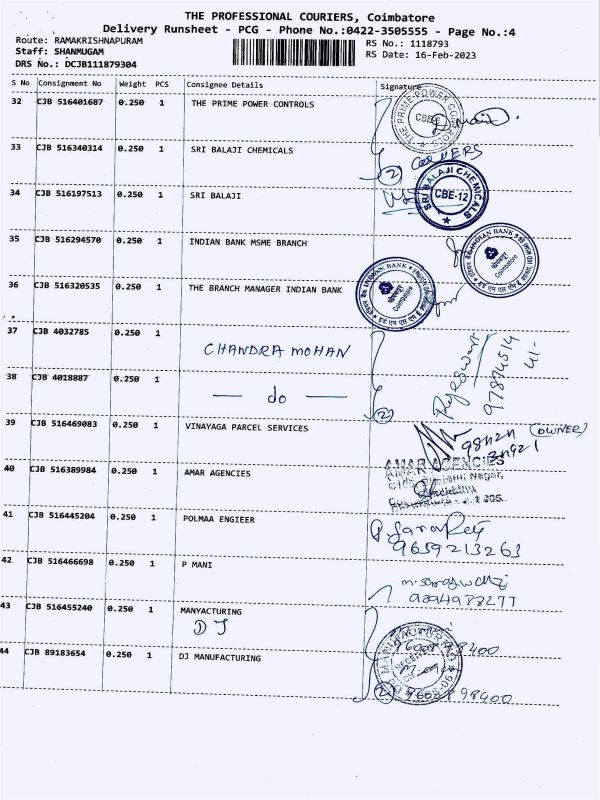 THE PROFESSIONAL COURIERS, Coimbatore
Delivery Runsheet - PCG - Phone No.:0422-3505555 - Page No.:4
Route: RAMAKRISHNAPURAM
Staff: SHANMUGAM
DRS No.: DCJB111879304
RS No.: 1118793
RS Date: 16-Feb-2023
S No Consignment No Weight PCS Consignee Details Signature
32 CJB 516401687 0.250 1 THE PRIME POWER CONTROLS
THE PRIME POWER CONTROLS CBE
33 CJB 516340314 0.250 1 SRI BALAJI CHEMICALS
2 COVERS
34 CJB 516197513 0.250 1 SRI BALAJI
SRI BALAJI CHEMICALS CBE-12
35 CJB 516294570 0.250 1 INDIAN BANK MSME BRANCH
INDIAN BANK Coimbatore
36 CJB 516320535 0.250 1 THE BRANCH MANAGER INDIAN BANK
INDIAN BANK Coimbatore
37 CJB 4032785 0.250 1
CHANDRA MOHAN
38 CJB 4018887 0.250 1
— do — 2
39 CJB 516469083 0.250 1 VINAYAGA PARCEL SERVICES
(OWNER)
40 CJB 516389984 0.250 1 AMAR AGENCIES
AMAR AGENCIES
41 CJB 516445204 0.250 1 POLMAA ENGIEER
9659213263
42 CJB 516466698 0.250 1 P MANI
43 CJB 516455240 0.250 1 MANYACTURING
DJ
44 CJB 89183654 0.250 1 DJ MANUFACTURING
2